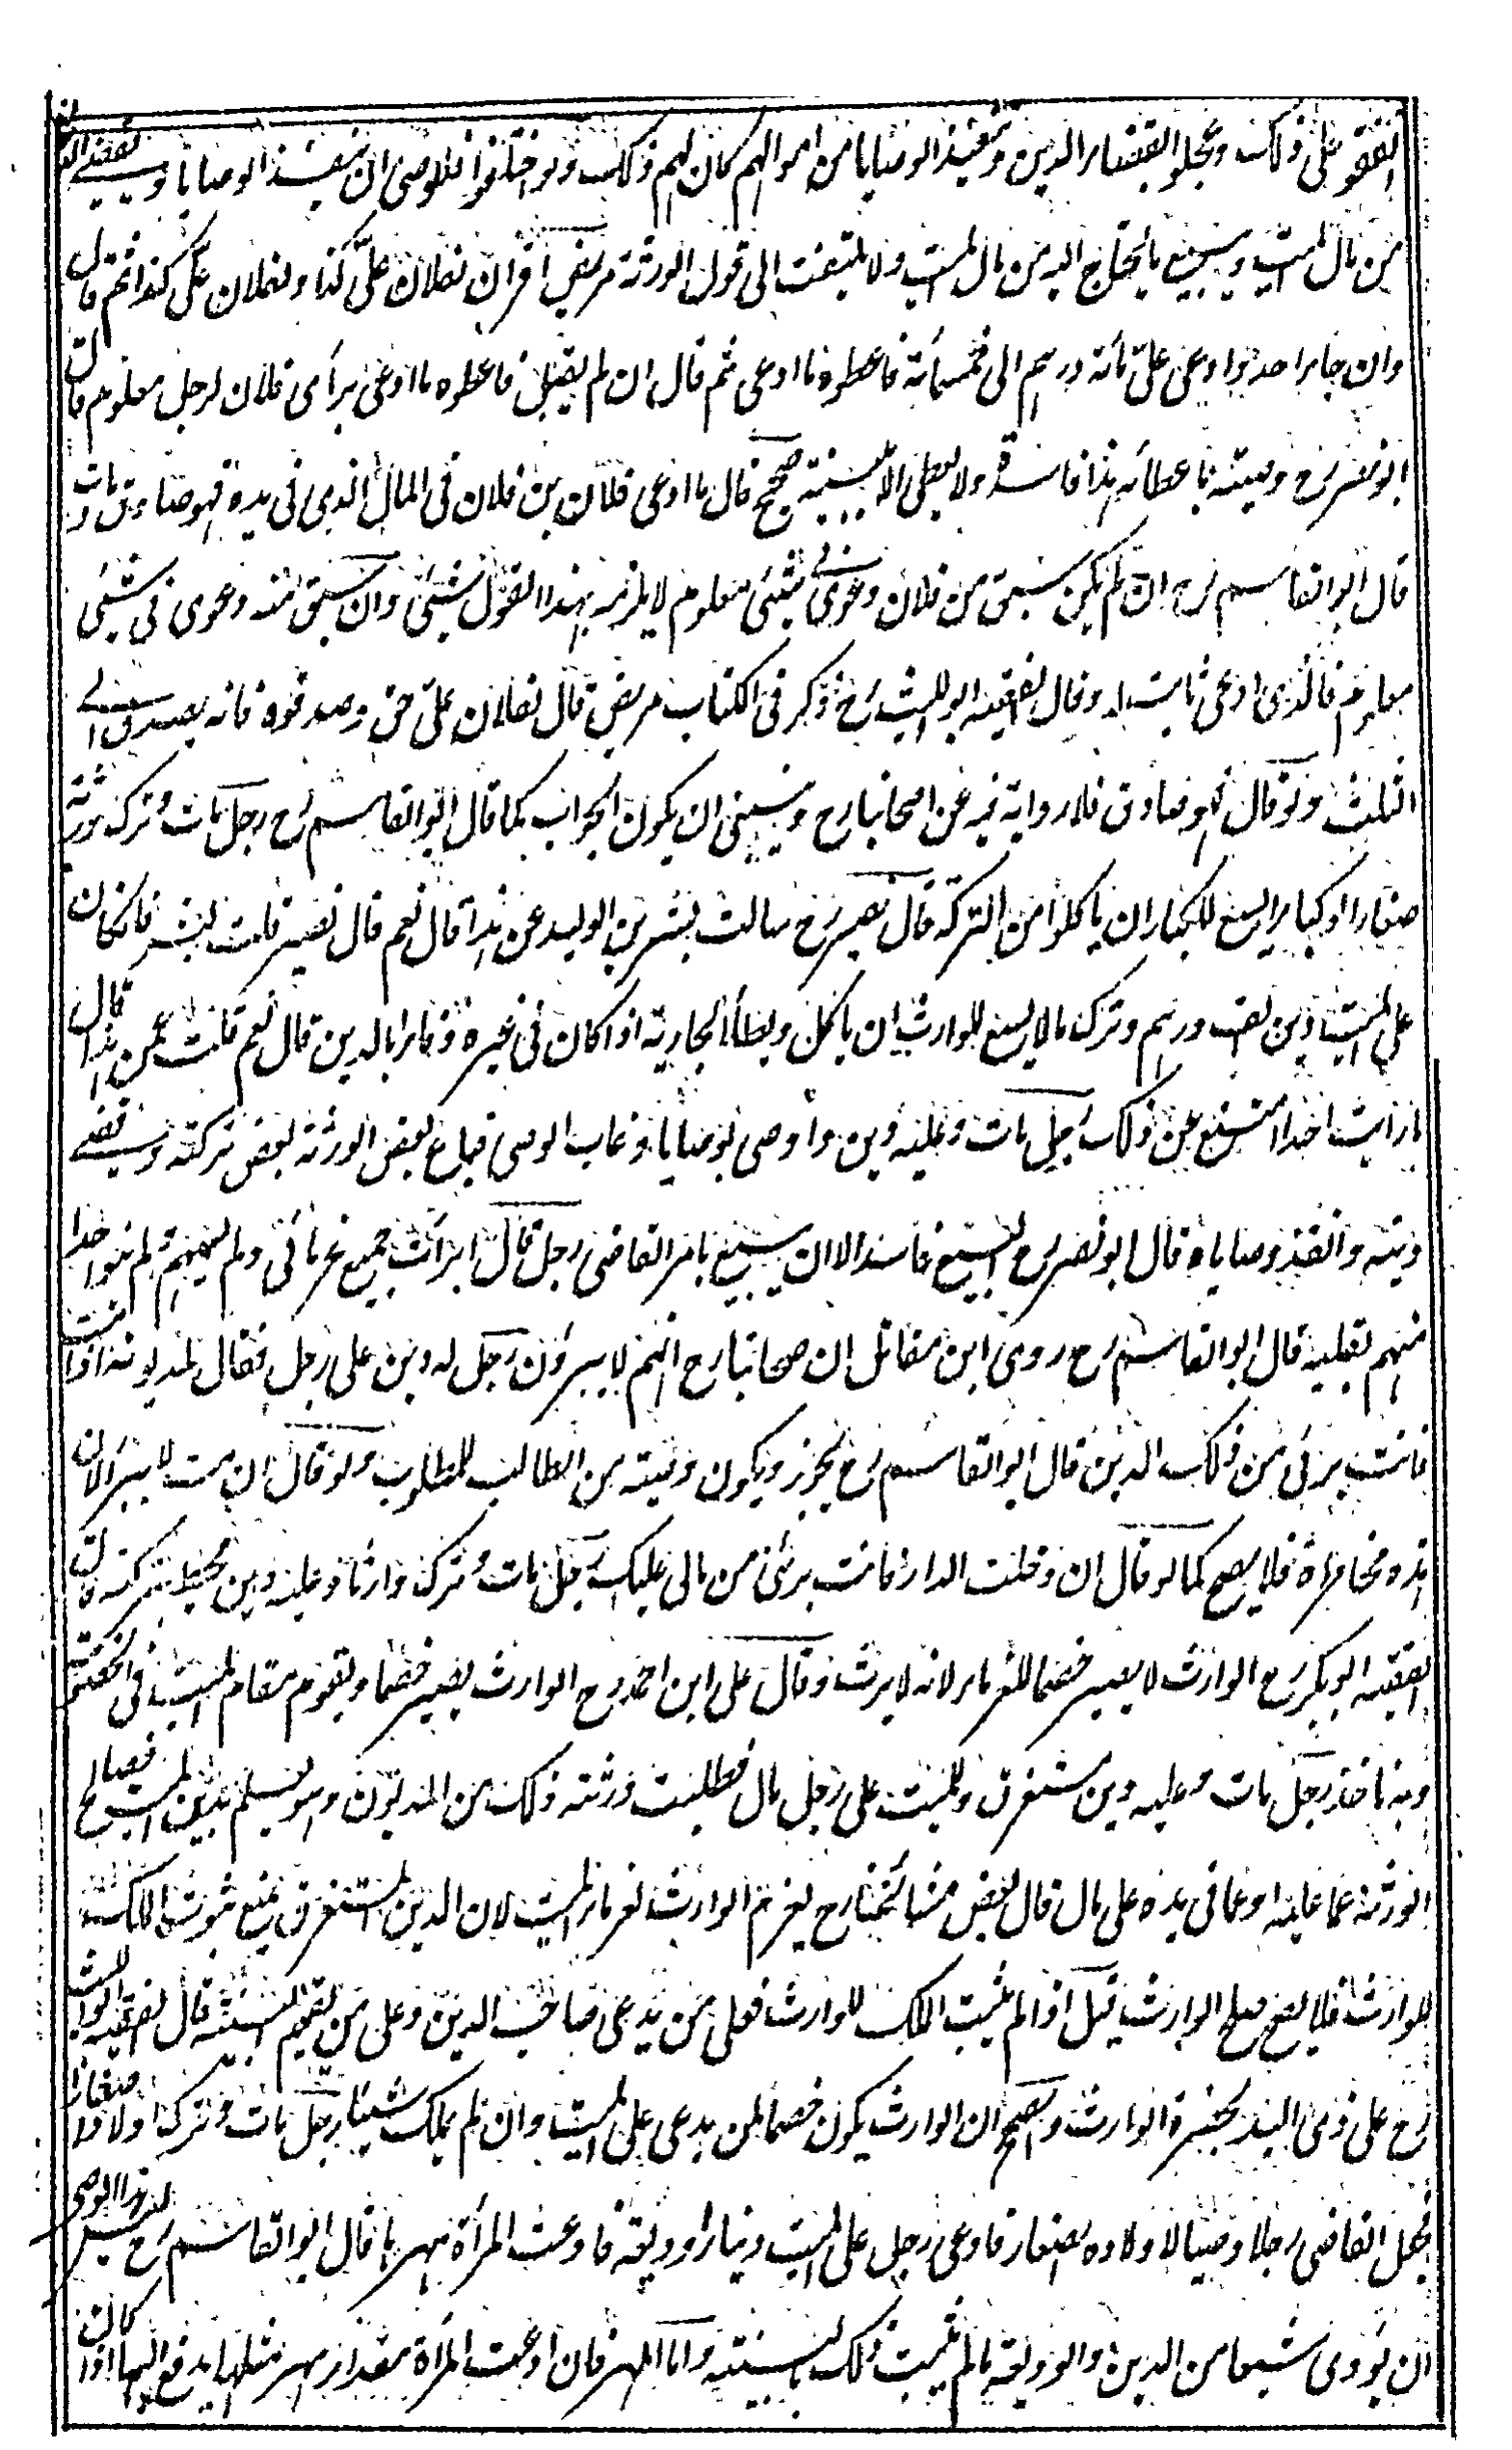 اتفقوا على ذلك وعجلوا القضاء الدين وتنفيذ الوصايا من اموالهم كان لهم ذلك ولو اختلفوا فللوصى ان ينفذ الوصايا ويقضى الدين
من مال الميت ويبيع ما يحتاج اليه من مال الميت ولا يلتفت الى قول الورثة مريض اقر ان لفلان علىّ كذا ولفلان علىّ كذا ثم قال
وان جاء احد وادعى علىّ مائة درهم الى خمسمائة فاعطوه ما ادعى ثم قال ان لم يقبل فاعطوه ما ادعى براى فلان لرجل معلوم قال
ابو نصر رح وصيته باعطائه هذا فاسدة ولا يعطى الا ببينة صحيح قال ما ادعى فلان بن فلان فى المال الذى فى يده فهو صادق ومات
قال ابو القاسم رح ان لم يكن سبق من فلان دعوى فى شئى معلوم لا يلزمه بهذا القول شئى وان سبق منه دعوى فى شئى
معلوم فالذى ادعى ثابت له وقال الفقيه ابو الليث رح ذكر فى الكتاب مريض قال لفلان علىّ حق وصدقوه فانه يصدق الى
الثلث ولو قال فهو صادق فلا رواية فيه عن اصحابنا رح وينبغى ان يكون الجواب كما قال ابو القاسم رح رجل مات وترك ورثة
صغارا او كبارا يسع للكبار ان ياكلوا من التركة قال نصير رح سالت بشر بن الوليد عن هذا قال نعم قال نصير قلت لبشر فان كان
على الميت دين الف درهم وترك مالا يسع للوارث ان ياكل ويطأ الجارية اذا كان فى غيره وفاء بالدين قال نعم قلت عمن هذا قال
ما رايت احدا امتنع عن ذلك رجل مات وعليه دين واوصى بوصايا وغاب الوصى فباع بعض الورثة بعض تركته وقضى
دينه وانفذ وصاياه قال ابو نصر رح البيع فاسد الا ان يبيع بامر القاضى رجل قال ابرأت جميع غرمائى ولم يسمهم ولم ينو احدا
منهم بقلبه قال ابو القاسم رح روى ابن مقاتل ان اصحابنا رح انهم لا يبرؤن رجل له دين على رجل فقال لمديونه اذا مت
فانت برئى من ذلك الدين قال ابو القاسم رح يجوز ويكون وصية من الطالب للمطلوب ولو قال ان مت لا يبرأ لان
هذه مخاطرة فلا يصح كما لو قال ان دخلت الدار فانت برئى من مالى عليك رجل مات وترك وارثا وعليه دين محيط بتركته قال
الفقيه ابو بكر رح الوارث لا يصير خصما للغرماء لانه لا يرث وقال على ابن احمد رح الوارث يصير خصما ويقوم مقام الميت فى الخصومة
وبه ناخذ رجل مات وعليه دين مستغرق وللميت على رجل مال فطلبت ورثته ذلك من المديون وهو يعلم بدين الميت فصالح
الورثة عما عليه او عما فى يده على مال قال بعض مشائخنا رح يغرم الوارث لغرماء الميت لان الدين المستغرق يمنع ثبوت الملك
للوارث فلا يصح صلح الوارث قيل اذا لم يثبت الملك للوارث فعلى من يدعى صاحب الدين وعلى من يقيم البينة قال الفقيه ابو الليث
رح على ذى اليد بحضرة الوارث والصحيح ان الوارث يكون خصما لمن يدعى على الميت وان لم يملك شيئا رجل مات وترك اولادا صغارا
فجعل القاضى رجلا وصيا لاولاده الصغار فادعى رجل على الميت دينا او وديعة وادعت المرأة مهرها قال ابو القاسم رح ليس لهذا الوصى
ان يؤدى شيئا من الدين والوديعة ما لم يثبت ذلك بالبينة واما المهر فان ادعت المرأة مقدار مهر مثلها يدفع اليها اذا كان